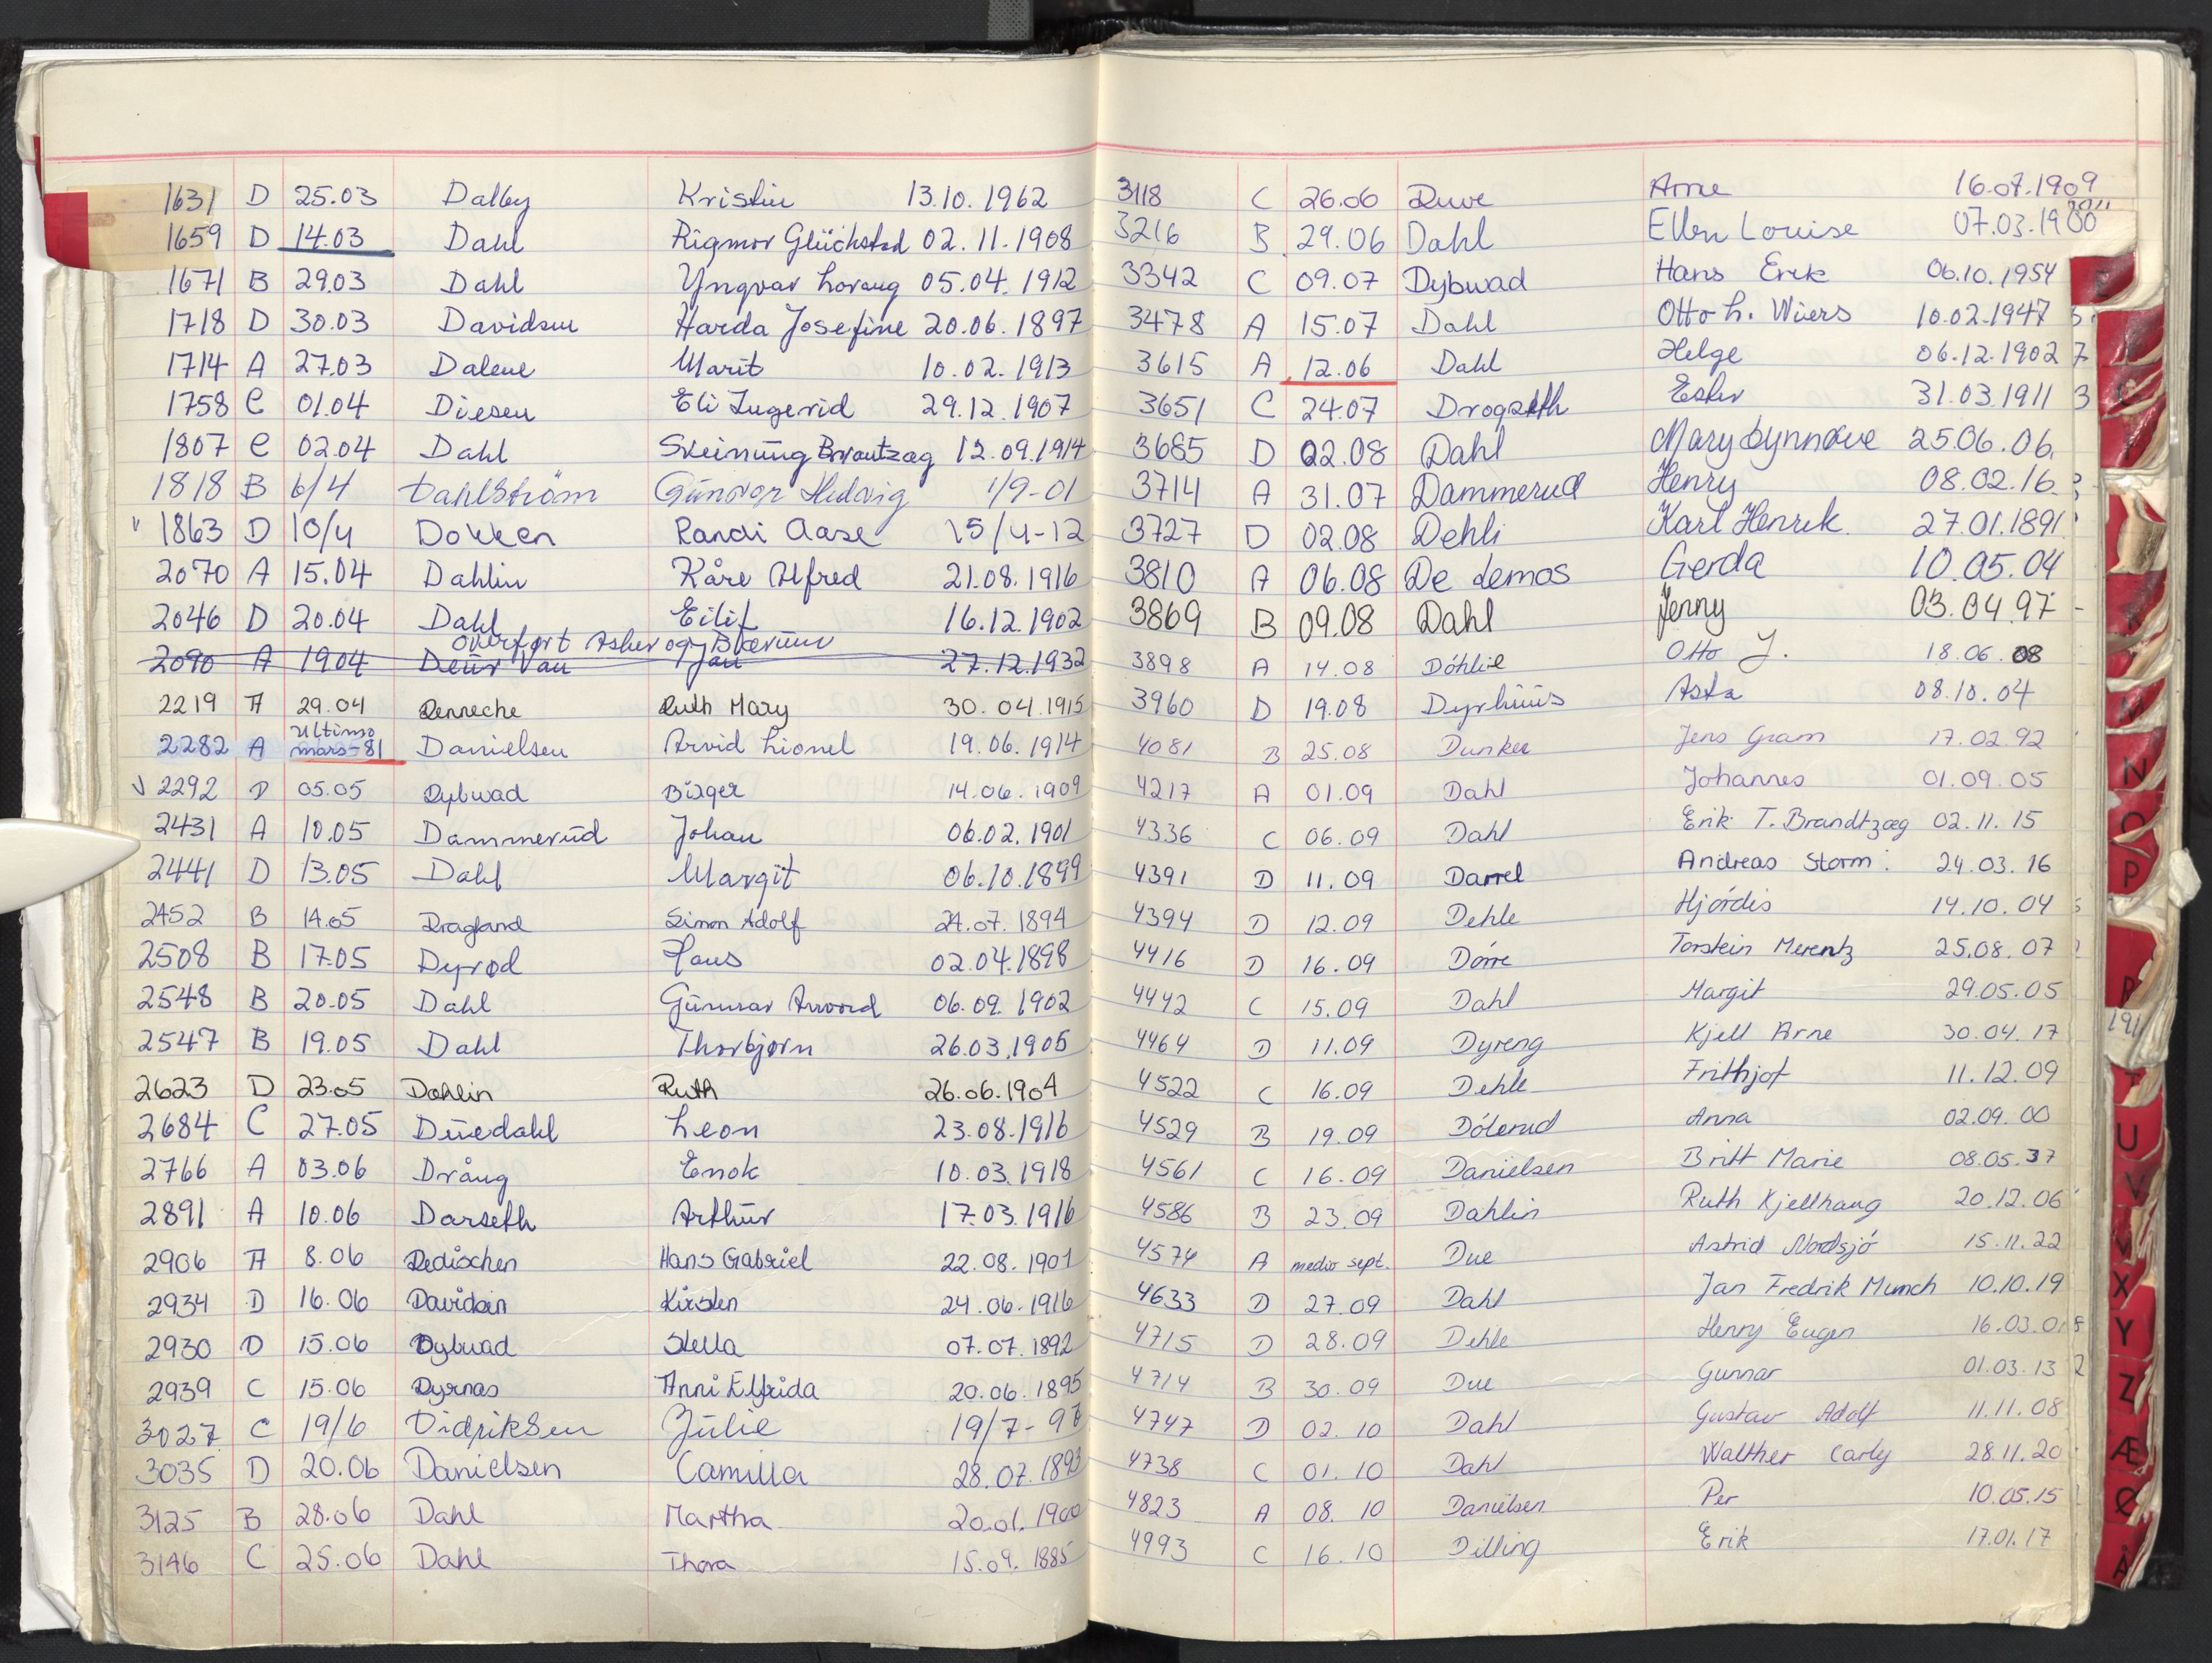 1631 D 25.03 Dalby Kristin 13.10.1962
1659 D 14.03 Dahl Rigmor Glückstad 02.11.1908
1671 B 29.03 Dahl Yngvar Lorang 05.04.1912
1718 D 30.03 Davidsen Harda Josefine 20.06.1897
1714 A 27.03 Dalene Marit 10.02.1913
1758 C 01.04 Diesen Eli Ingerid 29.12.1907
1807 C 02.04 Dahl Steinung 12.09.1914
1818 B 6/4 Dahlström Gunvor Hedvig 1/9-01
1863 D 10/4 Dokken Randi Aase 15/4-12
2070 A 15.04 Dahlin Kåre Alfred 21.08.1916
2046 D 20.04 Dahl Eilif 16.12.1902
Overført Asker og Bærum
2090 A 19.04 Deur Van Jan 27.12.1932
2219 A 29.04 Denneche Ruth Mary 30.04.1915
2282 A Ultimo mars-81 Danielsen Arvid Lionel 19.06.1914
2292 D 05.05 Dybwad Birger 14.06.1909
2431 A 10.05 Dammerud Johan 06.02.1901
2441 D 13.05 Dahl Margit 06.10.1899
2452 B 14.05 Dragland Simon Adolf 24.07.1894
2508 B 17.05 Dyrød Hans 02.04.1898
2548 B 20.05 Dahl Gunnar 06.09.1902
2547 B 19.05 Dahl Thorbjørn 26.03.1905
2623 D 23.05 Dahlin Ruth 26.06.1904
2684 C 27.05 Duedahl Leon 23.08.1916
2766 A 03.06 Drång Enok 10.03.1918
2891 A 10.06 Darseth Arthur 17.03.1916
2906 A 8.06 Dedichen Hans Gabriel 22.08.1901
2934 D 16.06 Davidsen Kirsten 24.06.1916
2930 D 15.06 Dybwad Stella 07.07.1892
2939 C 15.06 Dyrnas Anni Elfrida 20.06.1895
3027 C 19/6 Didriksen Julie
3035 D 20.06 Danielsen Camilla 28.07.1893
3125 B 28.06 Dahl Martha 20.01.1900
3146 C 25.06 Dahl Thora 15.09.1885
3118 C 26.06 Duve Arne 16.07.1909
3216 B 29.06 Dahl Ellen Louise 07.03.1900
3342 C 09.07 Dybwad Hans Erik 06.10.1954
3478 A 15.07 Dahl Otto L. Wiers 10.02.1947
3615 A 12.06 Dahl Helge 06.12.1902
3651 C 24.07 Drogseth Ester 31.03.1911
3685 D 02.08 Dahl Mary Synnøve 25.06.06
3714 A 31.07 Dammerud Henry 08.02.16
3727 D 02.08 Dehli Karl Henrik 27.01.1891
3810 A 06.08 De Lemos Gerda 10.05.04
3869 B 09.08 Dahl Jenny 03.04.97
3898 A 14.08 Döhlie Otto J. 18.06.08
3960 D 19.08 Dyrhuus Asta 08.10.04
4081 B 25.08 Dunker Jens Gram 17.02.92
4217 A 01.09 Dahl Johannes 01.09.05
4336 C 06.09 Dahl Erik T. Brandtzæg 02.11.15
4391 D 11.09 Darrel Andreas Storm 24.03.16
4394 D 12.09 Dehle Hjördis 14.10.04
4416 D 16.09 Dörre Torstein Merentz 25.08.07
4442 C 15.09 Dahl Margit 29.05.05
4464 D 11.09 Dyreng Kjell Arne 30.04.17
4522 C 16.09 Dehle Frithjof 11.12.09
4529 B 19.09 Dölerud Anna 02.09.00
4561 C 16.09 Danielsen Britt Marie 08.05.37
4586 B 23.09 Dahlin Ruth Kjellhaug 20.12.06
4574 A medio sept. Due Astrid Nordsjö 15.11.22
4633 D 27.09 Dahl Jan Fredrik Munch 10.10.19
4715 D 28.09 Dehle Henry Eugen 16.03.01
4714 B 30.09 Due Gunnar 01.03.13
4747 D 02.10 Dahl Gustav Adolf 11.11.08
4738 C 01.10 Dahl Walther Carly 28.11.20
4823 A 08.10 Danielsen Per 10.05.15
4993 C 16.10 Dilling Erik 17.01.17
N
O
P
R
U
V
X
Y
Z
Æ
Ø
Å